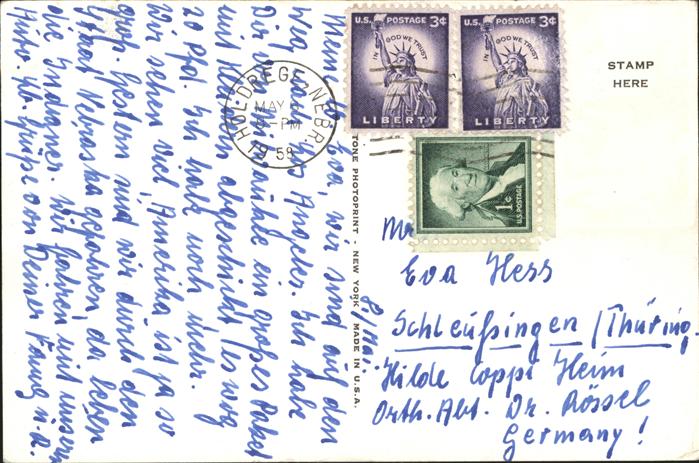 Meine Eva, wir sind auf den
Weg nach Los Angeles. Ich habe
Dir ein großes Paket
mit abgeschickt es wog
20 Pfd. Ich hab noch mehr.
Wir sehen viel Amerika ist ja so
groß. Gestern sind wir durch den
Staat Nebraska gefahren da leben
die Indianer. Wir fahren mit unserm
Auto. Grüße von Deiner
8/Mai.
U.S. POSTAGE 3¢
IN GOD WE TRUST
LIBERTY
U.S. POSTAGE 3¢
IN GOD WE TRUST
LIBERTY
1¢
U.S. POSTAGE
HOLDREGE, NEBR.
MAY
PM
58
STAMP
HERE
TONE PHOTOPRINT - NEW YORK MADE IN U.S.A.
Eva Hess
Schleußingen / Thüring.
Hilde Coppi Heim
Orth. Abt. Dr. Rössel
Germany!